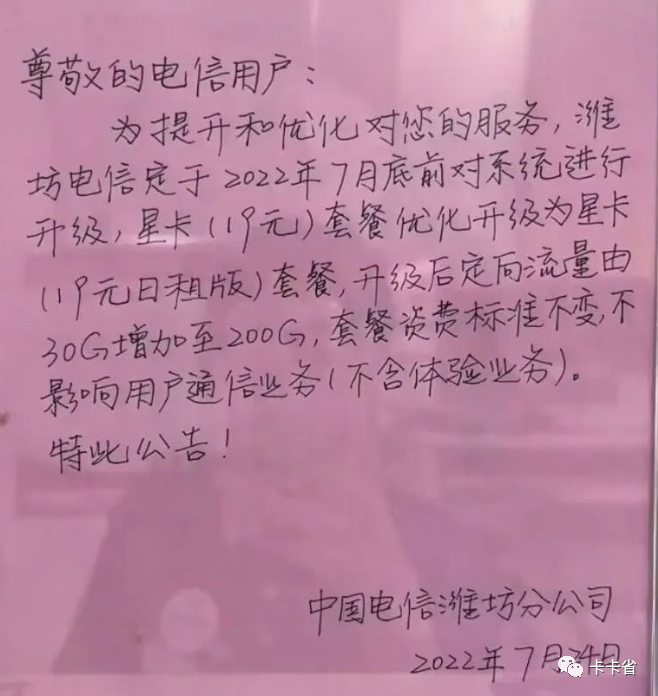 尊敬的电信用户：
为提升和优化对您的服务，潍
坊电信定于2022年7月底前对系统进行
升级，星卡（19元）套餐优化升级为星卡
（19元日租版）套餐，升级后定向流量由
30G增加至200G，套餐资费标准不变，不
影响用户通信业务（不含体验业务）。
特此公告！
中国电信潍坊分公司
2022年7月24日
卡卡省